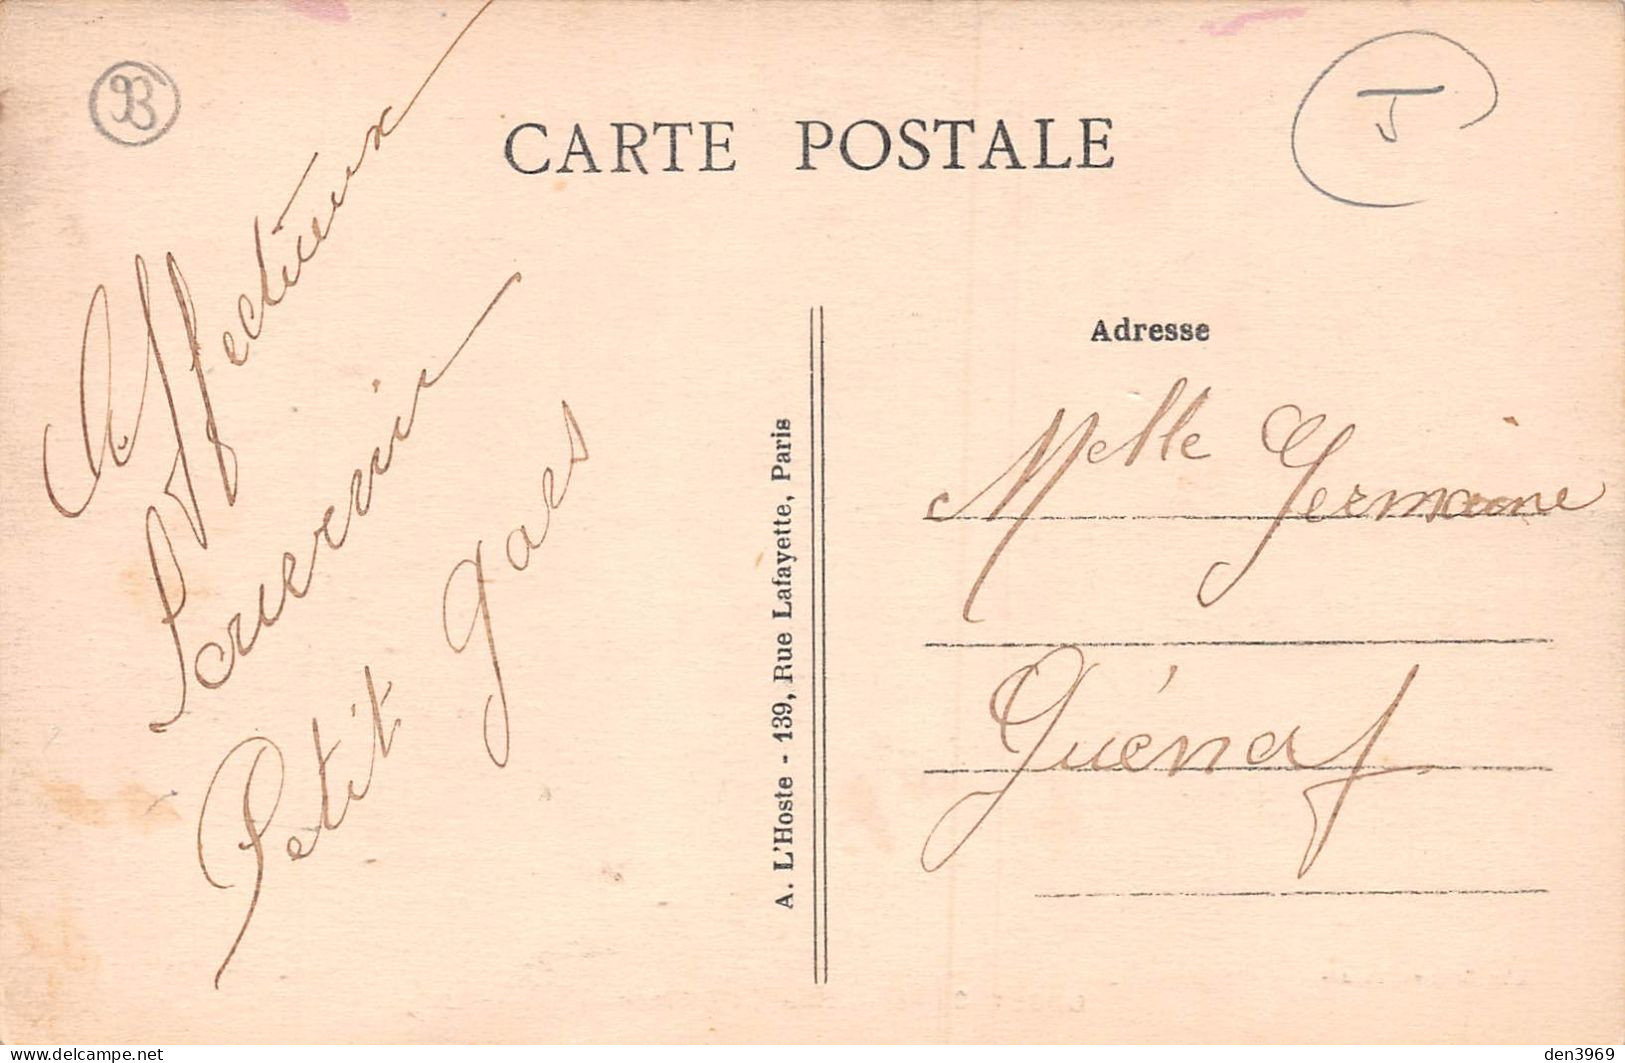 CARTE POSTALE
J
Affectueux
Souvenir
Petit gars
A. L'Hoste - 139, Rue Lafayette, Paris
Adresse
Melle Germaine
Guénaf
delcampe.net
den3969